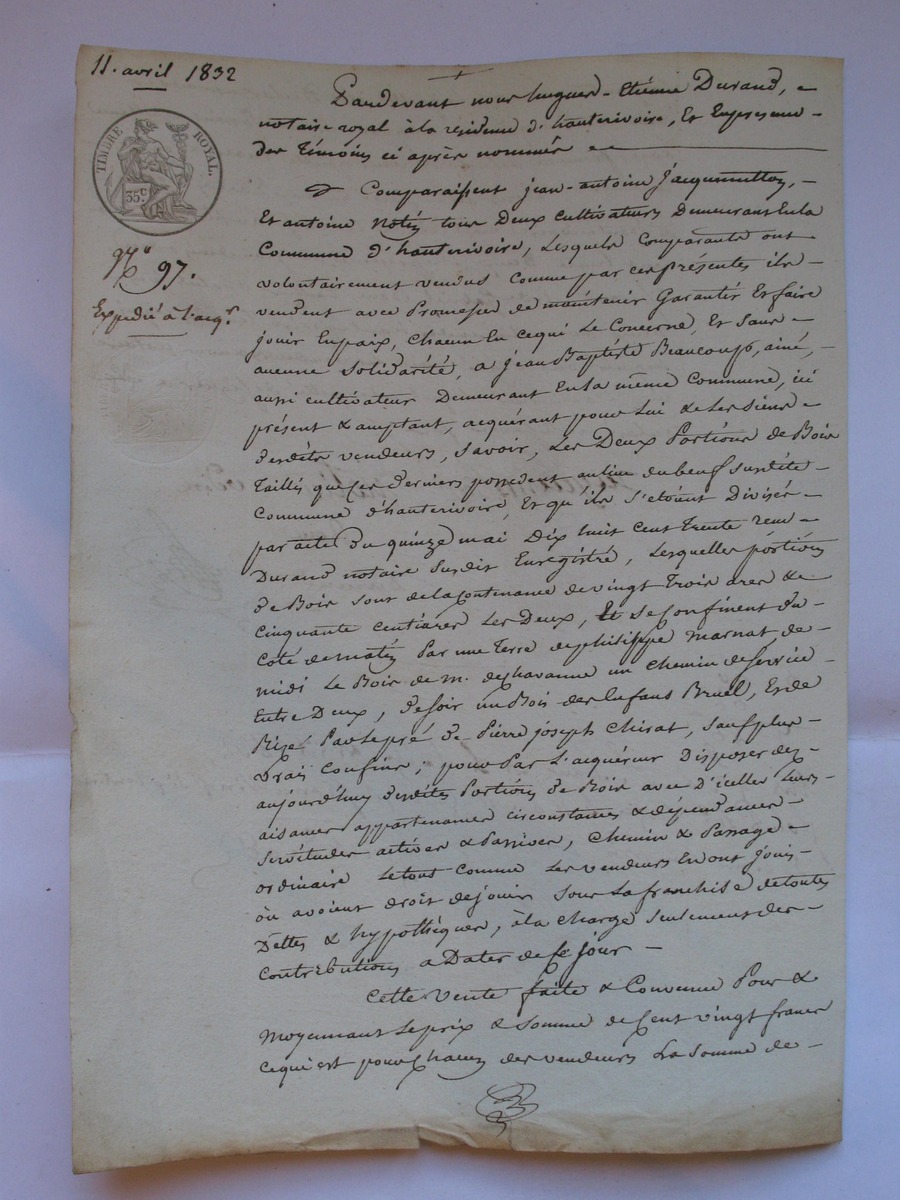 11. avril 1832
TIMBRE ROYAL.
35.c
N.o 97.
Expedié à l'acq.r
Pardevant nous hugues-Etienne Durand,
notaire royal à la residence d'hauterivoire, Et Enpresence
des Témoins ci après nommés
Comparaissent jean-antoine Jacquemetton,
Et antoine Notéz tous Deux cultivateurs Demeurant En la
Commune d'hauterivoire, Lesquels Comparants ont
volontairement vendus Comme par ces présentes ils
vendent avec Promesse de maintenir Garantir Et faire
jouir En paix, Chacun En cequi Le Concerne, Et sans
aucune Solidarité, a jean Baptiste Beaucoup, ainé,
aussi cultivateur Demeurant En la même Commune, ici
présent & acceptant, acquérant pour Lui & Les Siens
desdits vendeurs, Savoir, Les Deux Portions de Bois
Taillis que ces Derniers possedent au lieu du beuf susdite
Commune d'hauterivoire, Et qu'ils s'etoint Divisés
par acte du quinze mai Dix huit cent Trente reçu
Durand notaire Susdit Enregistré, Lesquelles pórtions
de Bois sont de la Contenance de vingt Trois ares &
Cinquante centiares Les Deux, Et se Confinent du
Coté de matin Par une Terre de philippe Marnat, de
midi Le Bois de m. de chavanne un chemin de service
Entre Deux, de soir un Bois des Enfans Bruel, Et de
Bize Par le pré de Pierre joseph Chirat, Sauf plus
vrais Confins; pour Par L'acquéreur Disposer dez
aujourd'huy desdites Portions de Bois avec D'icelles Leurs
aisances appartenances circonstances & dépendances
Servitudes actives & Passives, Chemin & Passage
ordinaire Letout Comme Les vendeurs En ont jouis
où avoient droit de jouir Sous La franchise de toutes
Dettes & hypothéques, à la Charge Seulement des
Contributions a Dater de Ce jour
Cette vente faite & Convenue Pour &
Moyennant Le prix & Somme de Cent vingt francs
ce qui est pour Chacun des vendeurs La Somme de